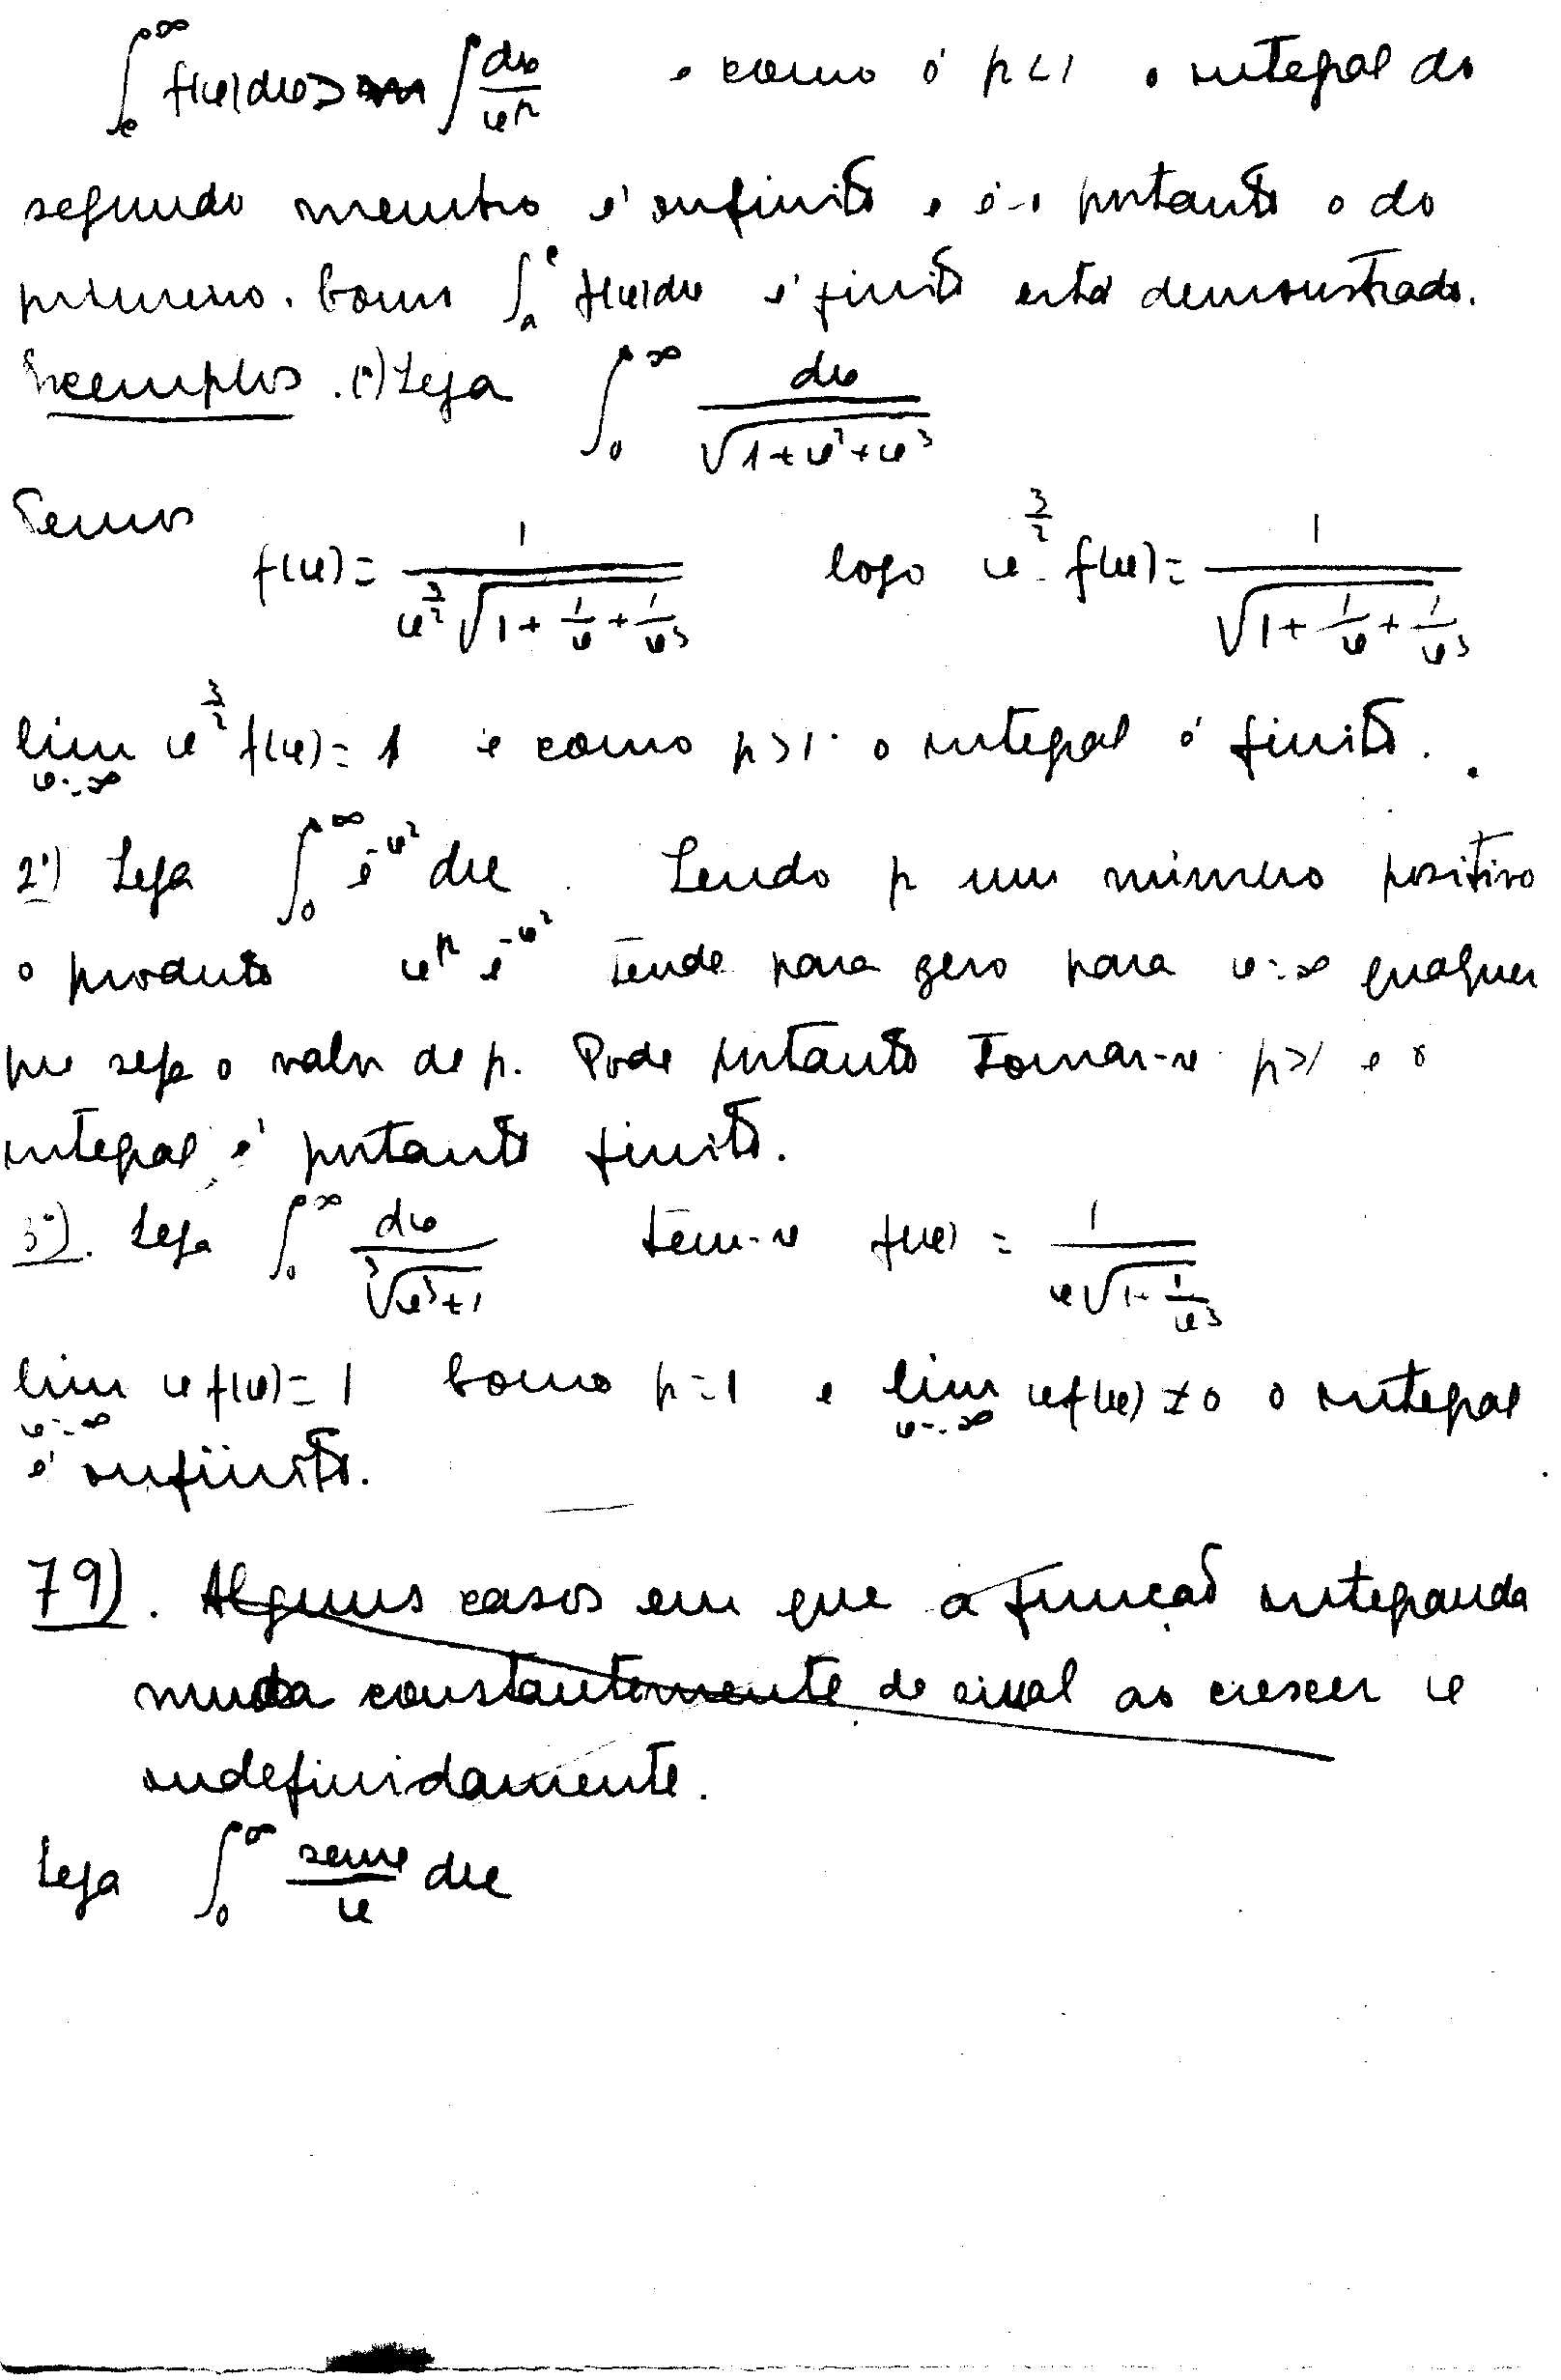 ∫_c^∞ f(x)dx > m ∫ dx/x^p e como é p<1 o integral do
segundo membro é infinito e é-o portanto o do
primeiro. Como ∫_a^c f(x)dx é finito está demonstrado.
Exemplos. 1º) Seja ∫_0^∞ dx/√(1+x²+x³)
Temos
f(x) = 1/(x^{3/2} √(1+1/x+1/x³)) logo x^{3/2} f(x) = 1/√(1+1/x+1/x³)
lim_{x=∞} x^{3/2} f(x) = 1 e como p>1 o integral é finito.
2º) Seja ∫_0^∞ e^{-x²} dx. Sendo p um número positivo
o produto x^p e^{-x²} tende para zero para x=∞ qualquer
que seja o valor de p. Pode portanto tomar-se p>1 e o
integral é portanto finito.
3º). Seja ∫_0^∞ dx/∛(x³+1) tem-se f(x) = 1/(x√(1-1/x³))
lim_{x=∞} x f(x) = 1 Como p=1 e lim_{x=∞} x f(x) ≠ 0 o integral
é infinito.
79). Alguns casos em que a função integranda
muda constantemente de sinal ao crescer x
indefinidamente.
Seja ∫_0^∞ senx/x dx